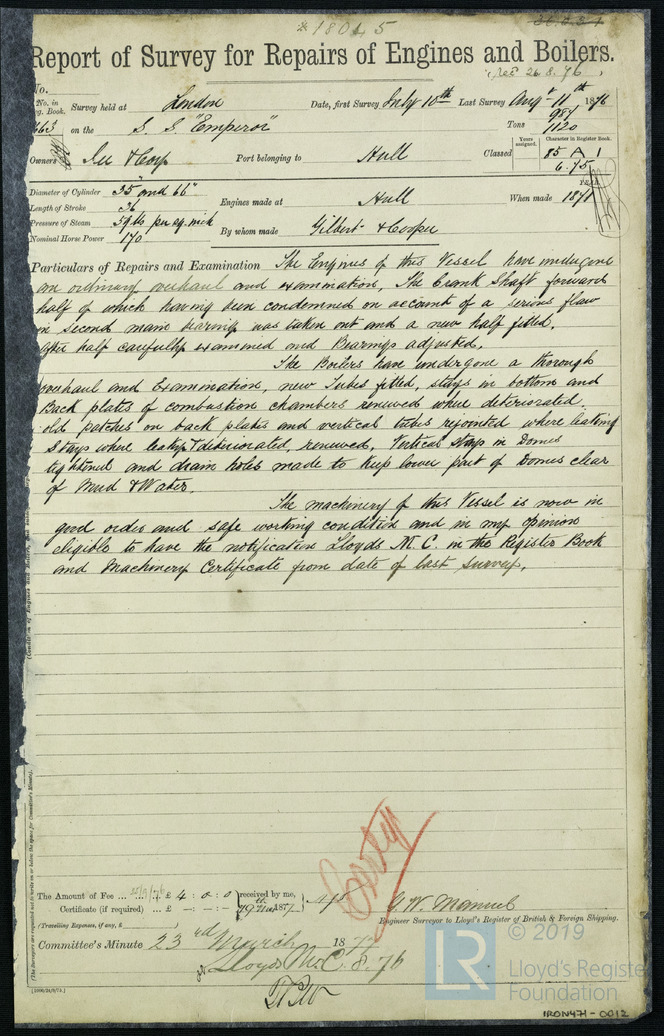 *18045
Report of Survey for Repairs of Engines and Boilers.
Rec 26.8.76
No.
No. in Reg. Book. Survey held at London Date, first Survey July 10th Last Survey Augt 11th 1876
463 on the S.S. "Emperor" Tons 984 1120
Years assigned. Character in Register Book.
Owners & Coy Port belonging to Hull Classed 85 A 1
6.75
Diameter of Cylinder 35" and 66"
Length of Stroke 36
Pressure of Steam lbs per sq. inch
Nominal Horse Power 170
Engines made at Hull When made 1871
By whom made Gilbert & Cooper
Particulars of Repairs and Examination The Engines of this Vessel have undergone
an ordinary overhaul and examination. The Crank Shaft forward
half of which having been condemned on account of a serious flaw
in second main bearing was taken out and a new half fitted.
after half carefully examined and Bearings adjusted.
The Boilers have undergone a thorough
overhaul and Examination, new Tubes fitted, stays in bottom and
Back plates of combustion chambers renewed where deteriorated.
old patches on back plates and vertical tubes rejointed where leaking
Stays where leaky & deteriorated, renewed, Vertical stays in Domes
tightened and drain holes made to keep lower part of Domes clear
of Mud & Water.
The machinery of this Vessel is now in
good order and safe working condition and in my opinion
eligible to have the notification Lloyds M.C. in the Register Book
and Machinery Certificate from date of last survey.
The Amount of Fee ... £ 4 : 0 : 0 received by me,
Certificate (if required) ... £ - : - : - 1877
(Travelling Expenses, if any, £ )
Certy
G. W. Manuel
Engineer Surveyor to Lloyd's Register of British & Foreign Shipping.
Committee's Minute 23rd March 1877
Lloyds M.C. 8.76
© 2019
LR Lloyd's Register
Foundation
IRON471-0012